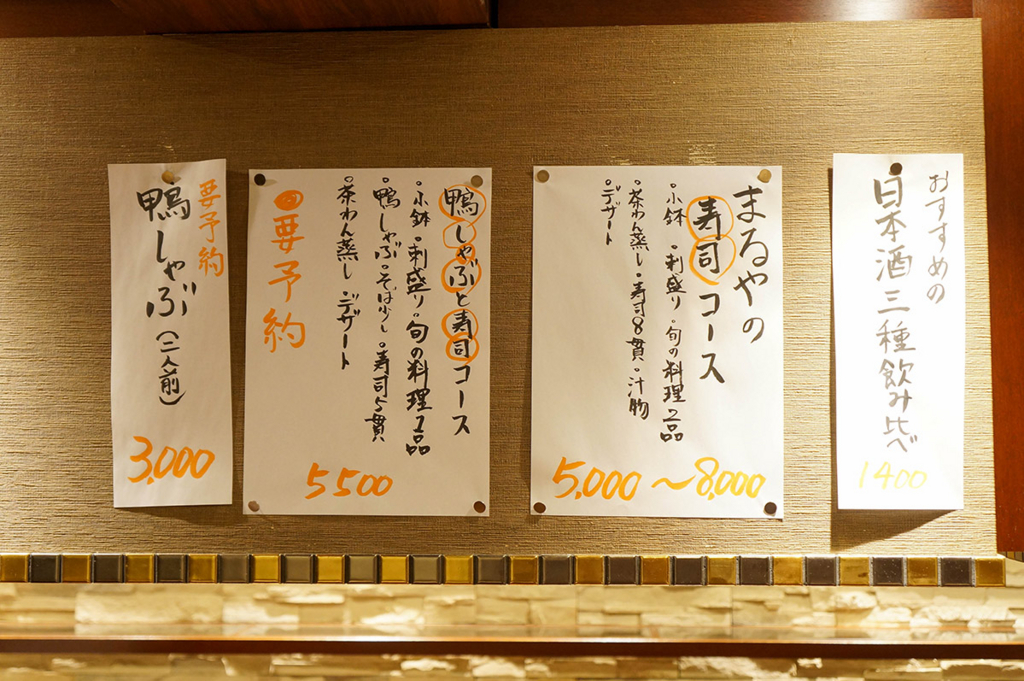 おすすめの
日本酒三種飲み比べ
1400
まるやの
寿司コース
・小鉢・刺盛り・旬の料理2品
・茶わん蒸し・寿司8貫・汁物
・デザート
5,000～8,000
鴨しゃぶと寿司コース
・小鉢・刺盛り・旬の料理1品
・鴨しゃぶ・そば少し・寿司5貫
・茶わん蒸し・デザート
要予約
5500
要予約
鴨しゃぶ(二人前)
3,000